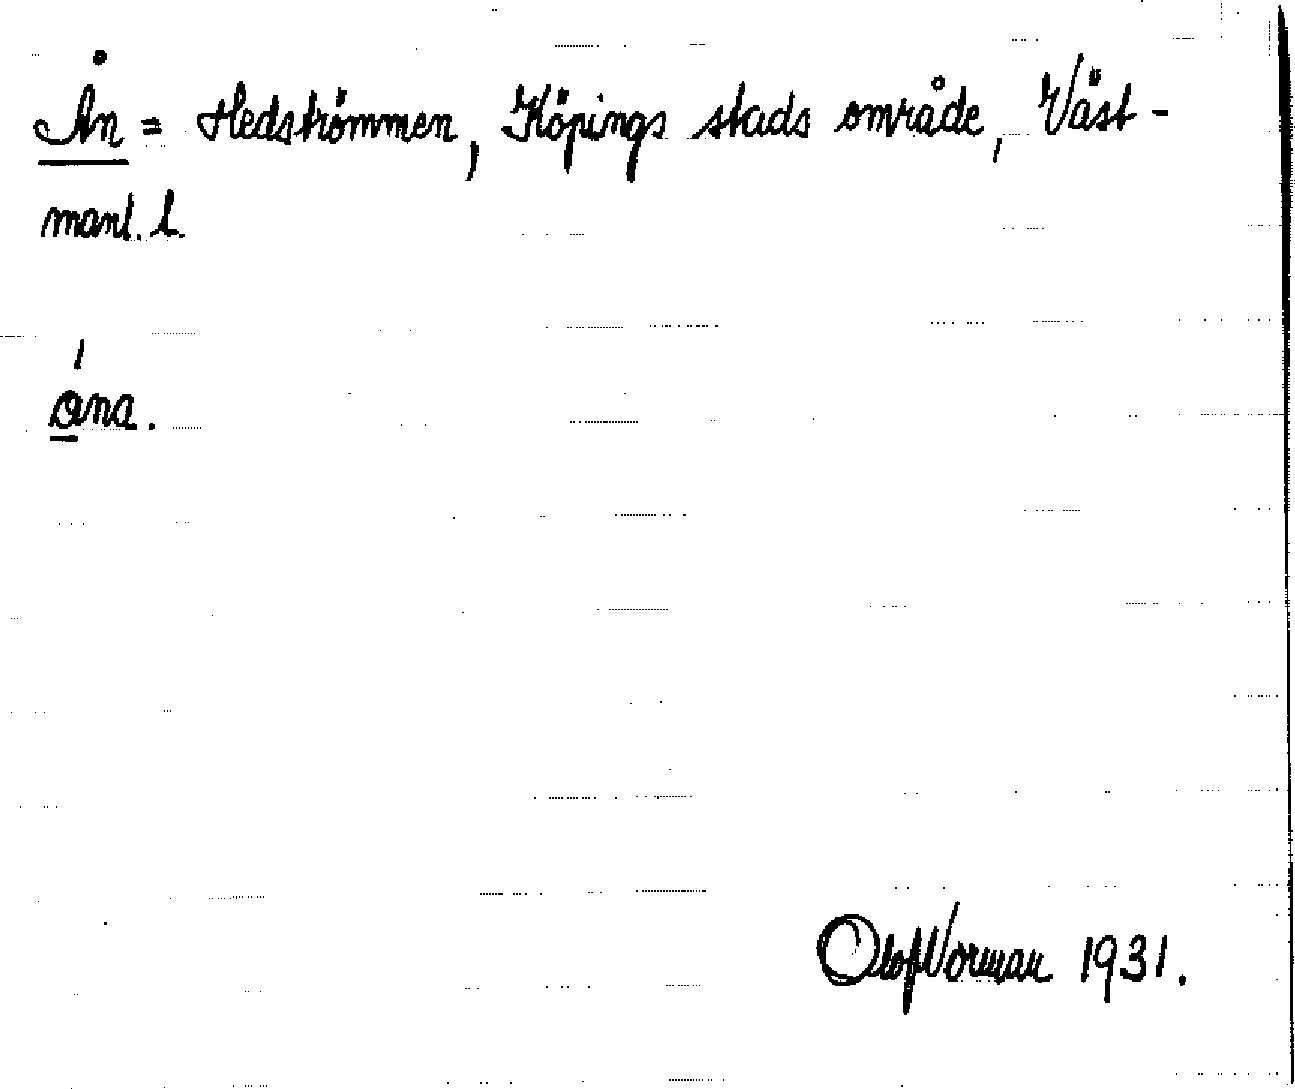 Ån = Hedströmmen, Köpings stads område, Väst-
manl. l.
åna.
Olof Norman 1931.